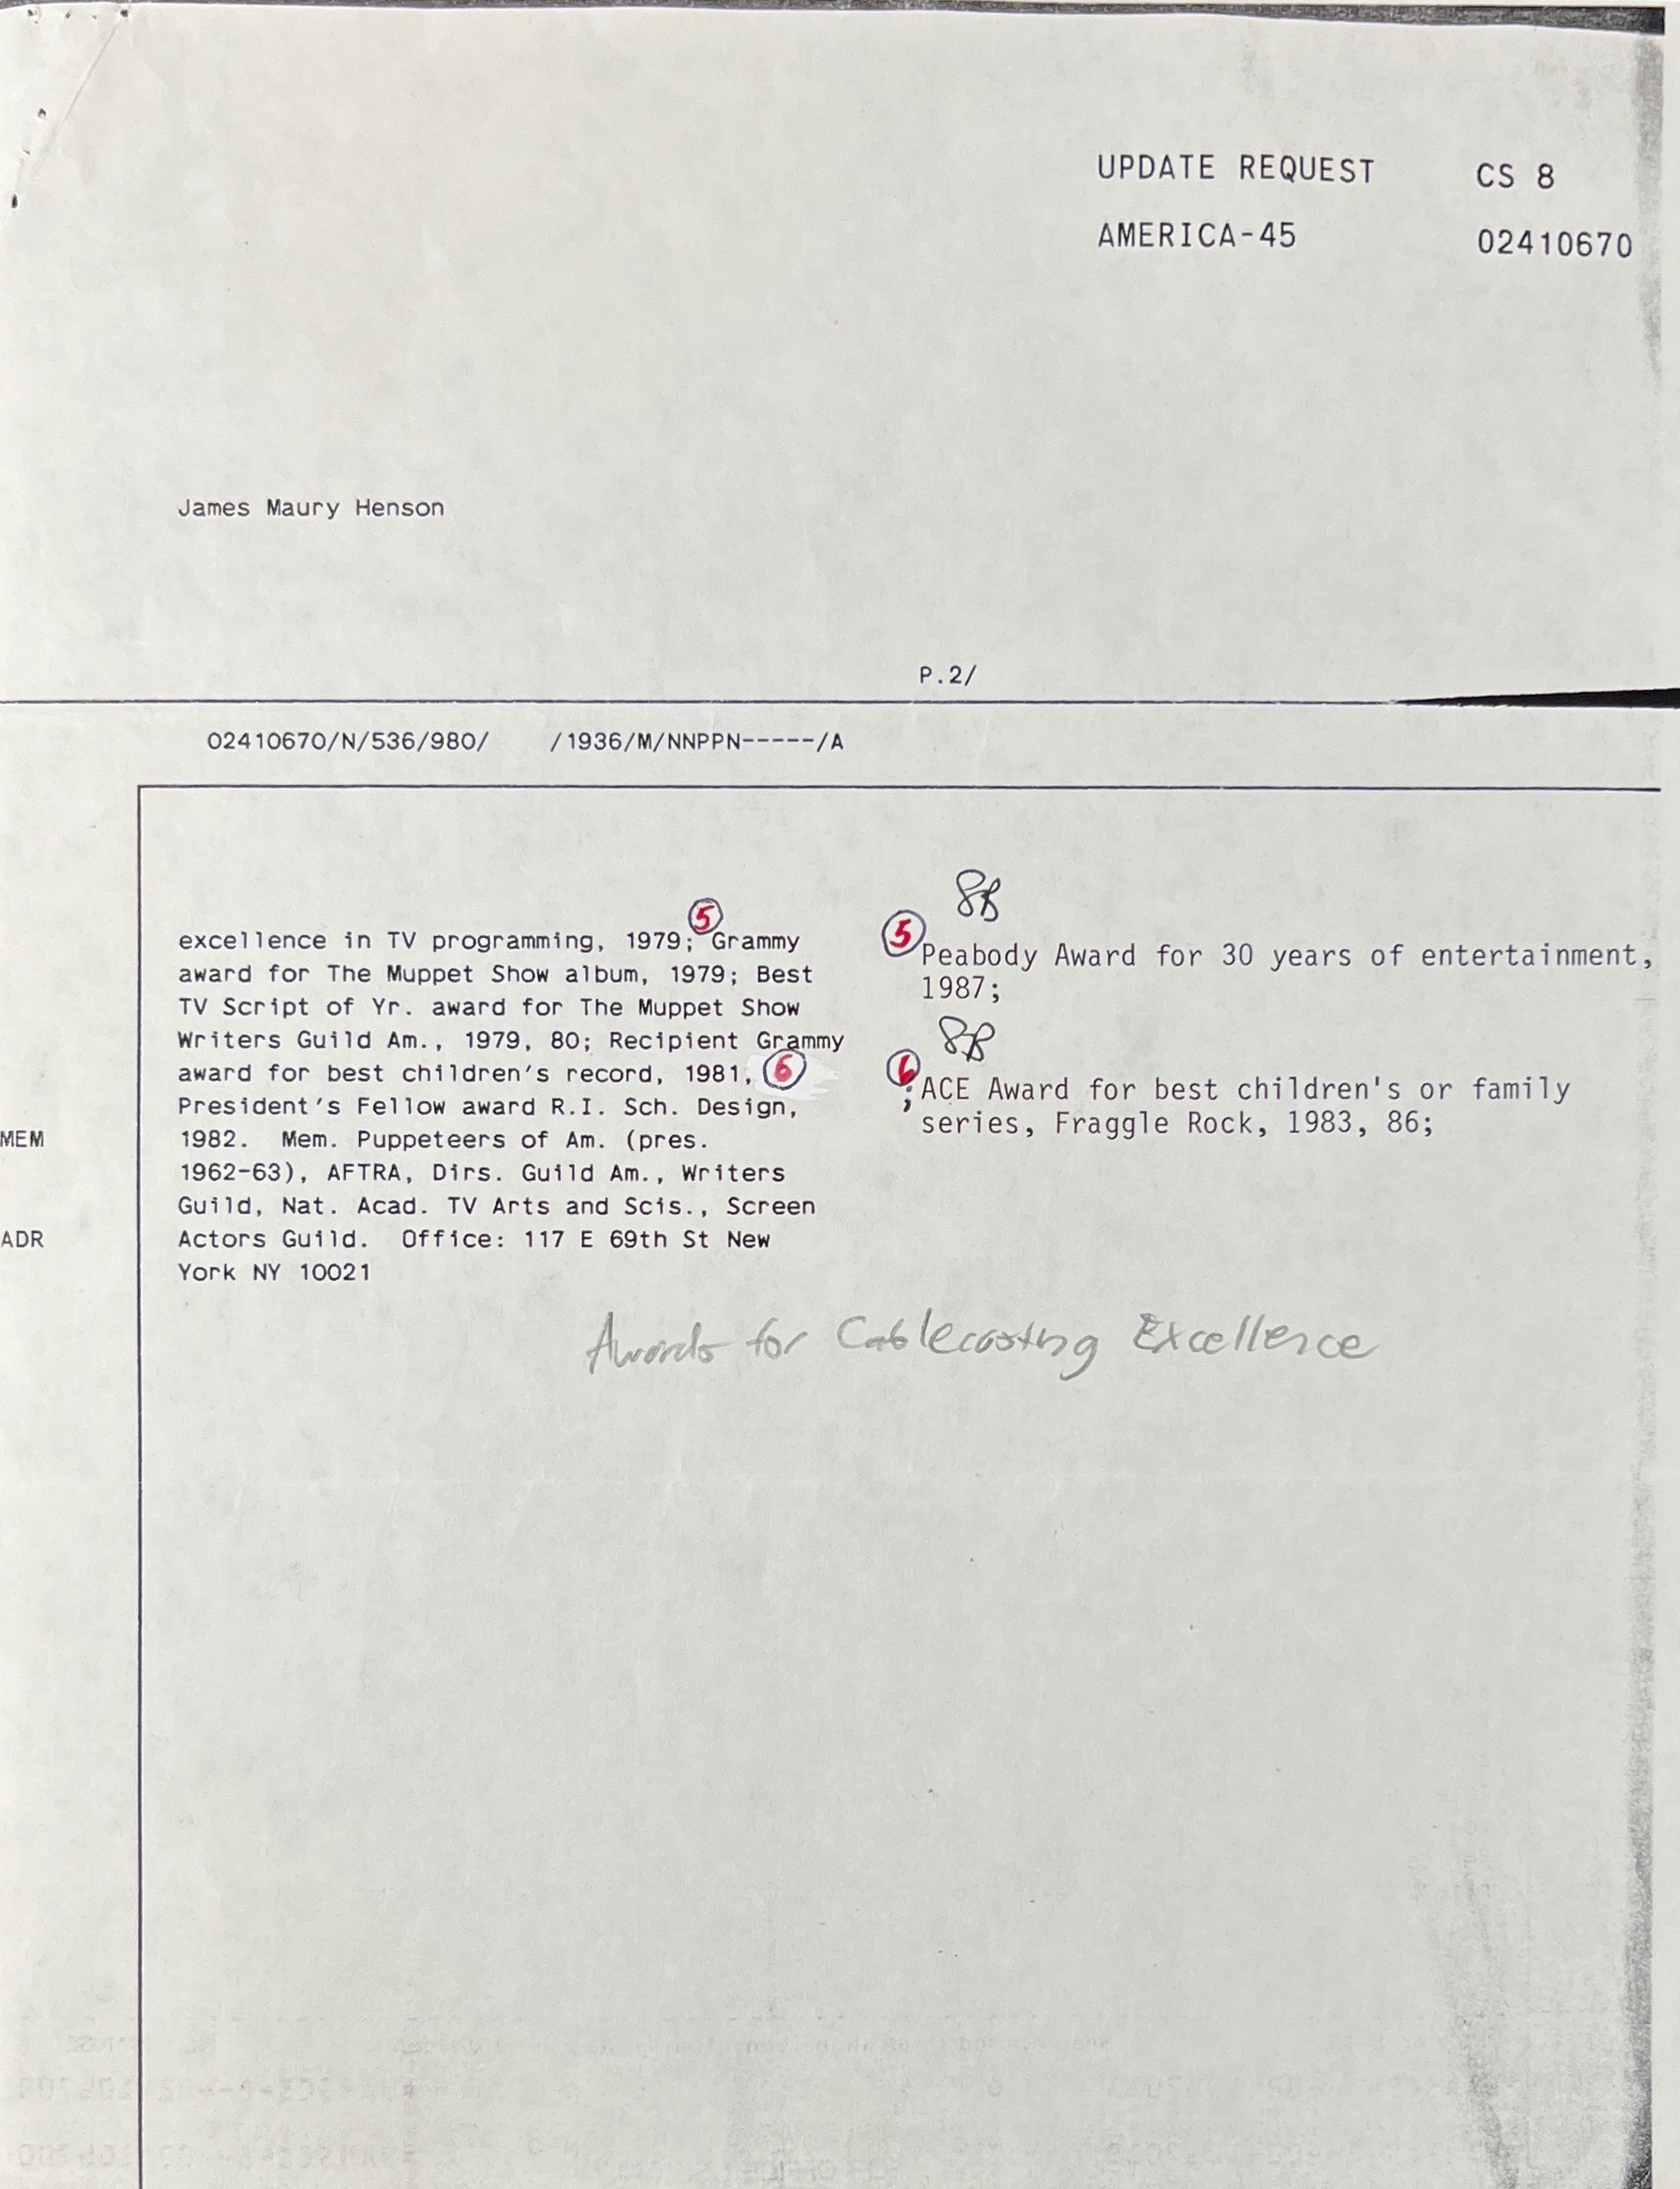 UPDATE REQUEST CS 8
AMERICA-45 02410670
James Maury Henson
P.2/
02410670/N/536/980/ /1936/M/NNPPN-----/A
5
excellence in TV programming, 1979; Grammy
award for The Muppet Show album, 1979; Best
TV Script of Yr. award for The Muppet Show
Writers Guild Am., 1979, 80; Recipient Grammy
award for best children's record, 1981, 6
President's Fellow award R.I. Sch. Design,
MEM 1982. Mem. Puppeteers of Am. (pres.
1962-63), AFTRA, Dirs. Guild Am., Writers
Guild, Nat. Acad. TV Arts and Scis., Screen
ADR Actors Guild. Office: 117 E 69th St New
York NY 10021
5 Peabody Award for 30 years of entertainment,
1987;
6 ;ACE Award for best children's or family
series, Fraggle Rock, 1983, 86;
Awards for Cablecasting Excellence